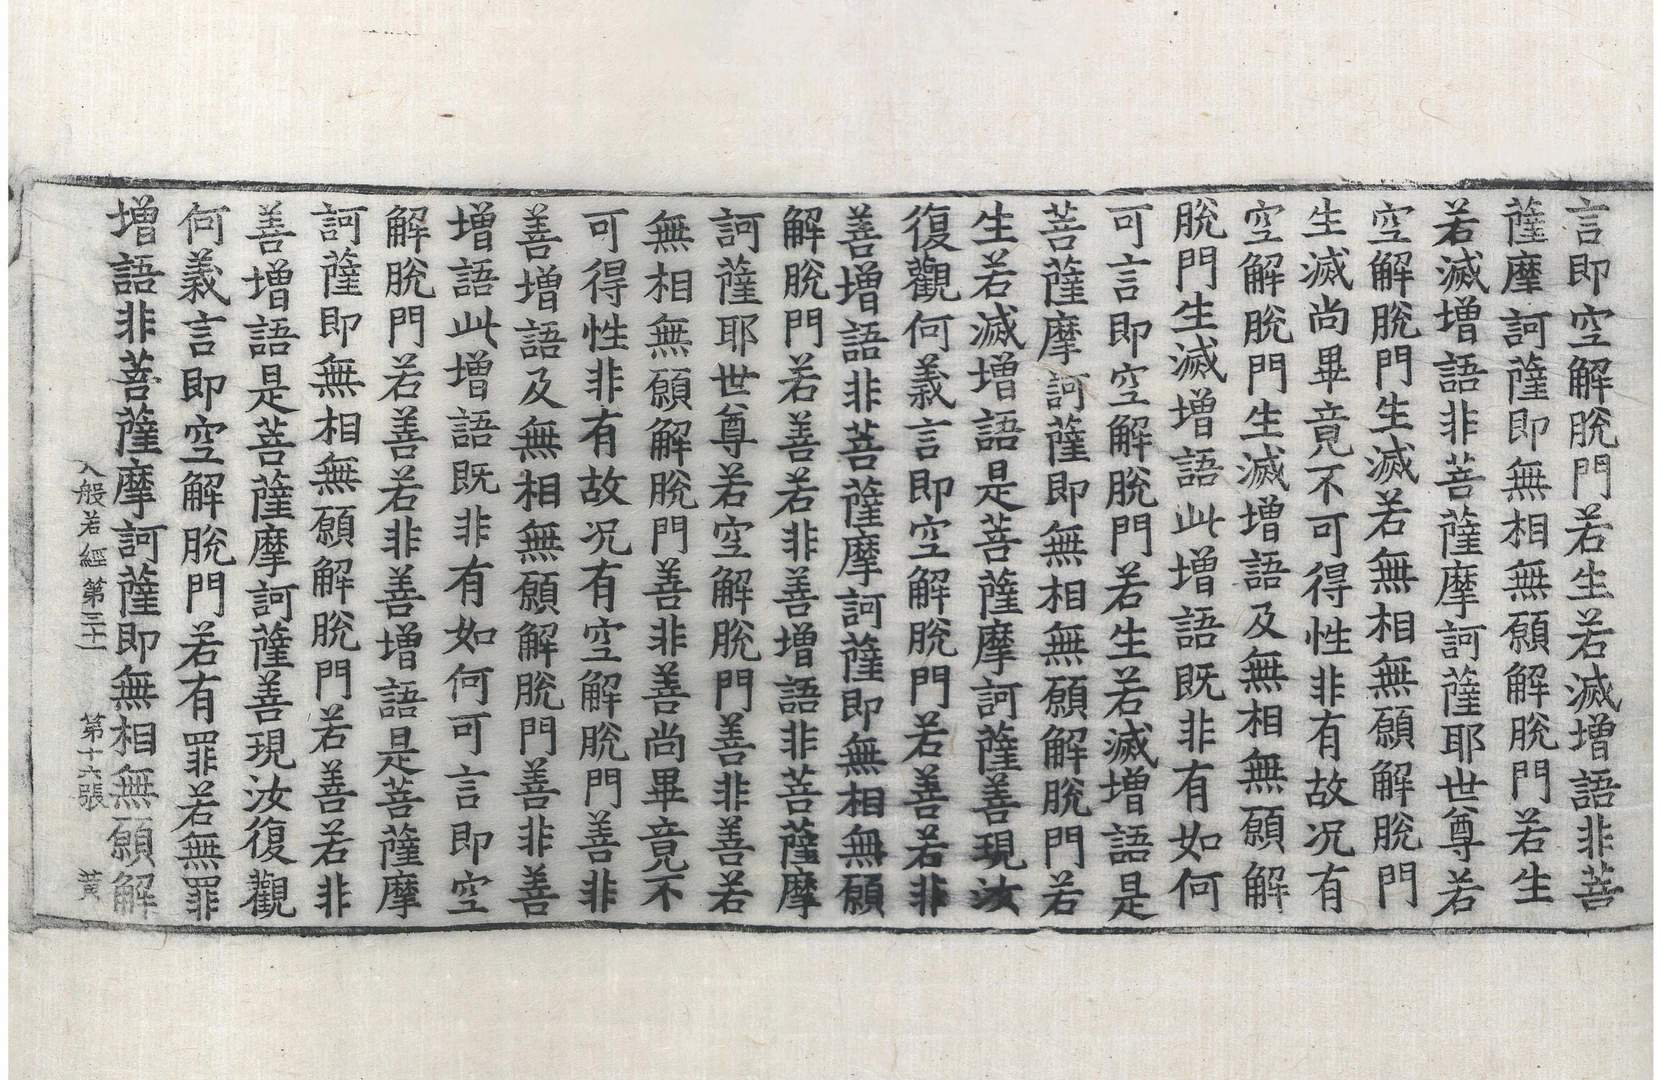 言即空解脫門若生若滅增語非菩
薩摩訶薩即無相無願解脫門若生
若滅增語非菩薩摩訶薩耶世尊若
空解脫門生滅若無相無願解脫門
生滅尚畢竟不可得性非有故况有
空解脫門生滅增語及無相無願解
脫門生滅增語此增語既非有如何
可言即空解脫門若生若滅增語是
菩薩摩訶薩即無相無願解脫門若
生若滅增語是菩薩摩訶薩善現汝
復觀何義言即空解脫門若善若非
善增語非菩薩摩訶薩即無相無願
解脫門若善若非善增語非菩薩摩
訶薩耶世尊若空解脫門善非善若
無相無願解脫門善非善尚畢竟不
可得性非有故况有空解脫門善非
善增語及無相無願解脫門善非善
增語此增語既非有如何可言即空
解脫門若善若非善增語是菩薩摩
訶薩即無相無願解脫門若善若非
善增語是菩薩摩訶薩善現汝復觀
何義言即空解脫門若有罪若無罪
增語非菩薩摩訶薩即無相無願解
般若經第三十一 第十六張 黄